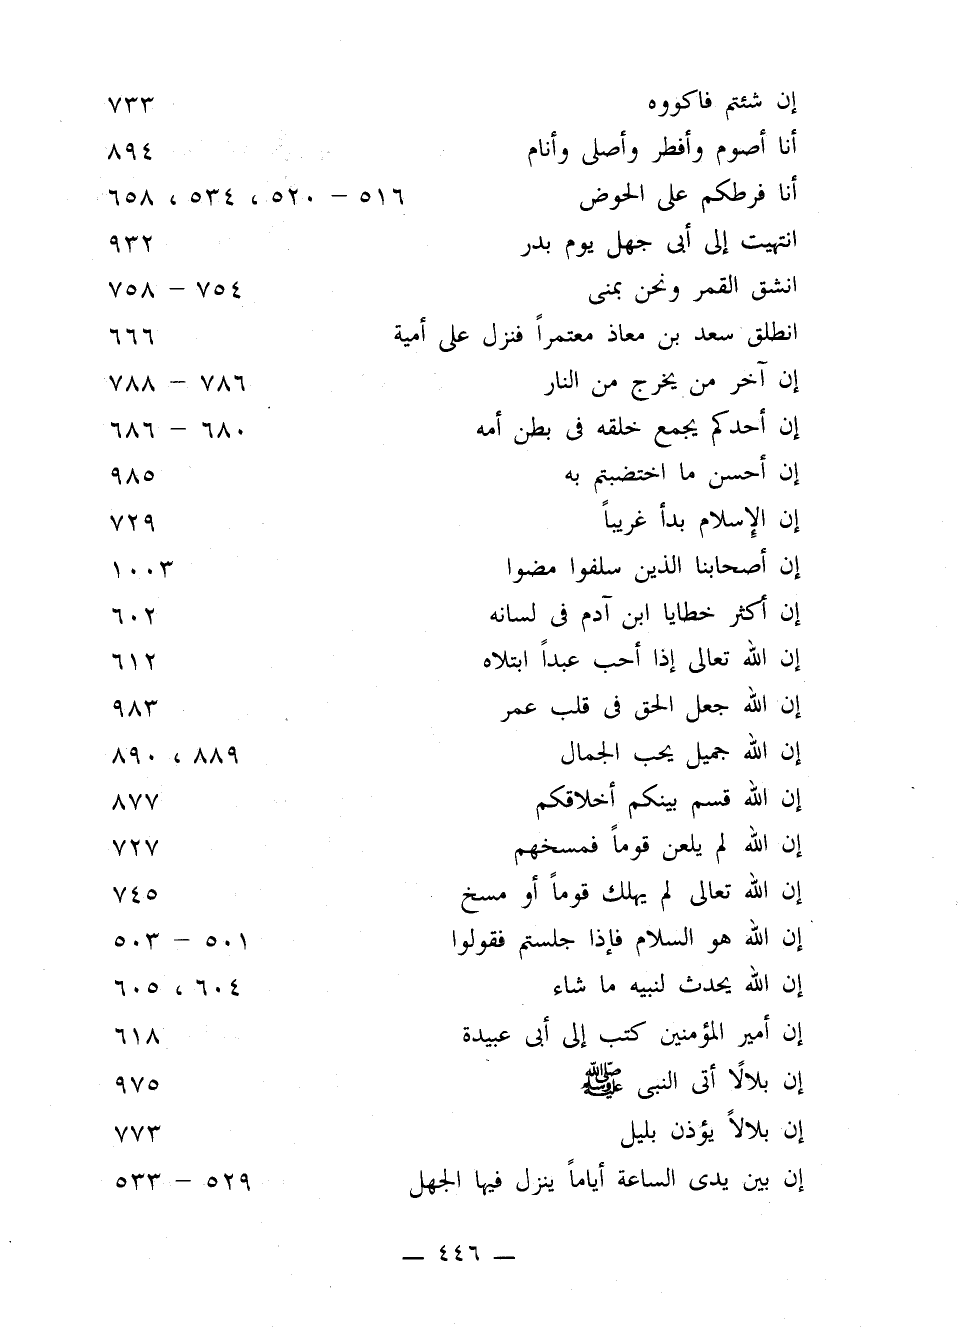 إن شئتم فاكووه ٧٣٣
أنا أصوم وأفطر وأصلى وأنام ٨٩٤
أنا فرطكم على الحوض ٥١٦ – ٥٢٠ ، ٥٣٤ ، ٦٥٨
انتهيت إلى أبى جهل يوم بدر ٩٣٢
انشق القمر ونحن بمنى ٧٥٤ – ٧٥٨
انطلق سعد بن معاذ معتمراً فنزل على أمية ٦٦٦
إن آخر من يخرج من النار ٧٨٦ – ٧٨٨
إن أحدكم يجمع خلقه فى بطن أمه ٦٨٠ – ٦٨٦
إن أحسن ما اختضبتم به ٩٨٥
إن الإسلام بدأ غريباً ٧٢٩
إن أصحابنا الذين سلفوا مضوا ١٠٠٣
إن أكثر خطايا ابن آدم فى لسانه ٦٠٢
إن الله تعالى إذا أحب عبداً ابتلاه ٦١٢
إن الله جعل الحق فى قلب عمر ٩٨٣
إن الله جميل يحب الجمال ٨٨٩ ، ٨٩٠
إن الله قسم بينكم أخلاقكم ٨٧٧
إن الله لم يلعن قوماً فمسخهم ٧٢٧
إن الله تعالى لم يهلك قوماً أو مسخ ٧٤٥
إن الله هو السلام فإذا جلستم فقولوا ٥٠١ – ٥٠٣
إن الله يحدث لنبيه ما شاء ٦٠٤ ، ٦٠٥
إن أمير المؤمنين كتب إلى أبى عبيدة ٦١٨
إن بلالًا أتى النبى ﷺ ٩٧٥
إن بلالاً يؤذن بليل ٧٧٣
إن بين يدى الساعة أياماً ينزل فيها الجهل ٥٢٩ – ٥٣٣
— ٤٤٦ —